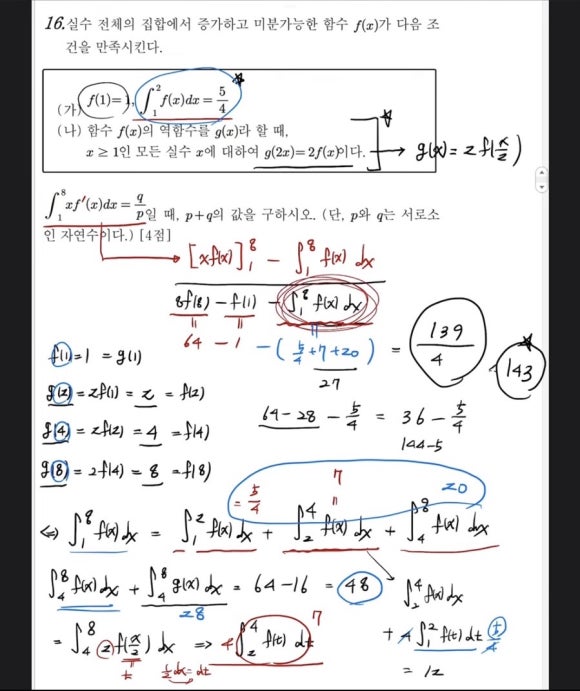 16. 실수 전체의 집합에서 증가하고 미분가능한 함수 f(x)가 다음 조
건을 만족시킨다.
(가) f(1)=1, ∫₁² f(x)dx = 5/4
(나) 함수 f(x)의 역함수를 g(x)라 할 때,
x ≥ 1인 모든 실수 x에 대하여 g(2x)=2f(x)이다. → g(x) = 2f(x/2)
∫₁⁸ xf′(x)dx = q/p일 때, p+q의 값을 구하시오. (단, p와 q는 서로소
인 자연수이다.) [4점]
[xf(x)]₁⁸ − ∫₁⁸ f(x) dx
8f(8) − f(1) − ∫₁⁸ f(x) dx
64 − 1
− (5/4 + 7 + 20) = 139/4
27
143
f(1) = 1 = g(1)
g(2) = 2f(1) = 2 = f(2)
64 − 28 − 5/4 = 36 − 5/4
g(4) = 2f(2) = 4 = f(4)
144 − 5
g(8) = 2f(4) = 8 = f(8)
= 5/4 7 20
⇔ ∫₁⁸ f(x) dx = ∫₁² f(x) dx + ∫₂⁴ f(x) dx + ∫₄⁸ f(x) dx
∫₄⁸ f(x) dx + ∫₄⁸ g(x) dx = 64 − 16 = 48
28
∫₂⁴ f(x) dx
= ∫₄⁸ 2f(x/2) dx ⇒ 4∫₂⁴ f(t) dt 7
t ½dx = dt
+ 4∫₁² f(t) dt 5/4
= 12